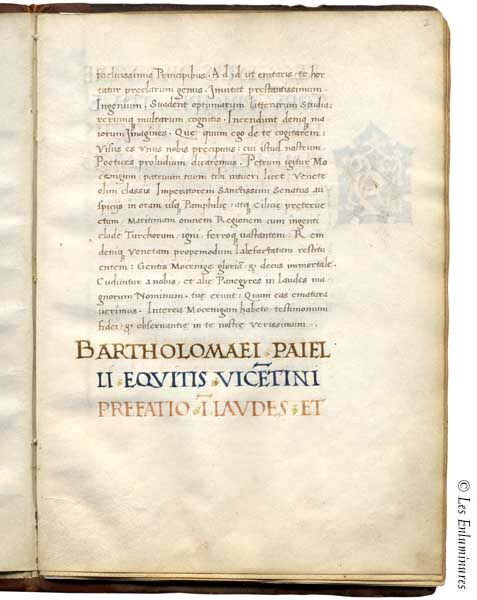 2
foelicissimis Principibus. Ad id ut enitaris: te hor
tatur preclarum genus. Inuitat prestantissimum
Ingenium. Suadent optimarum litterarum Studia:
rerumq multarum cognitio. Incendunt deniq ma
iorum Imagines. Que quum ego de te cogitarem:
Visus es vnus nobis precipuus: cui istud nostrum
Poetices proludium dicaremus. Petrum igitur Mo
cenigum patruum tuum tibi intueri licet. Venete
olim classis Imperatorem Sanctissimi Senatus au
spicijs in oram usq Pamphilie. atq Cilicie preterue
ctum. Maritimam omnem Regionem cum ingenti
clade Turchorum igni. ferroq vastantem: Rem
deniq Venetam propemodum labefactatam restitu
entem: Gentis Mocenige gloriā. & decus immortale.
Cuduntur a nobis, et alie Panegyres in laudes ma
gnorum Nominum. tue erunt: Quum eas ematura
uerimus. Interea Mocenigam habeto. testimonium
fidei, & obseruantie in te nostre verissimum.
BARTHOLOMAEI PAIEL
LI EQVITIS VICĒTINI
PREFATIO Ī LAVDES ET
© Les Enluminures